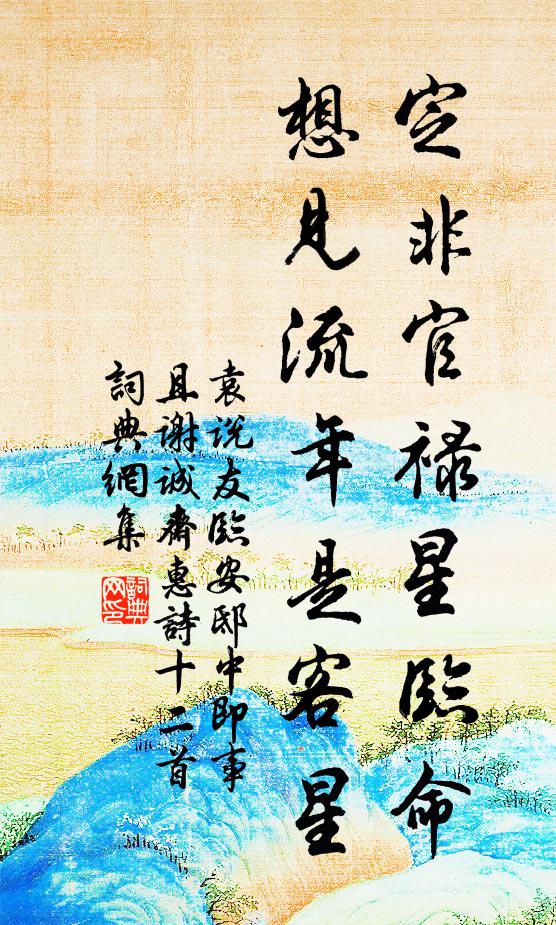 定非官禄星臨命
想見流年是客星
袁说友臨安邸中即事
且谢诚齋惠詩十二首
詞典網集
詞典